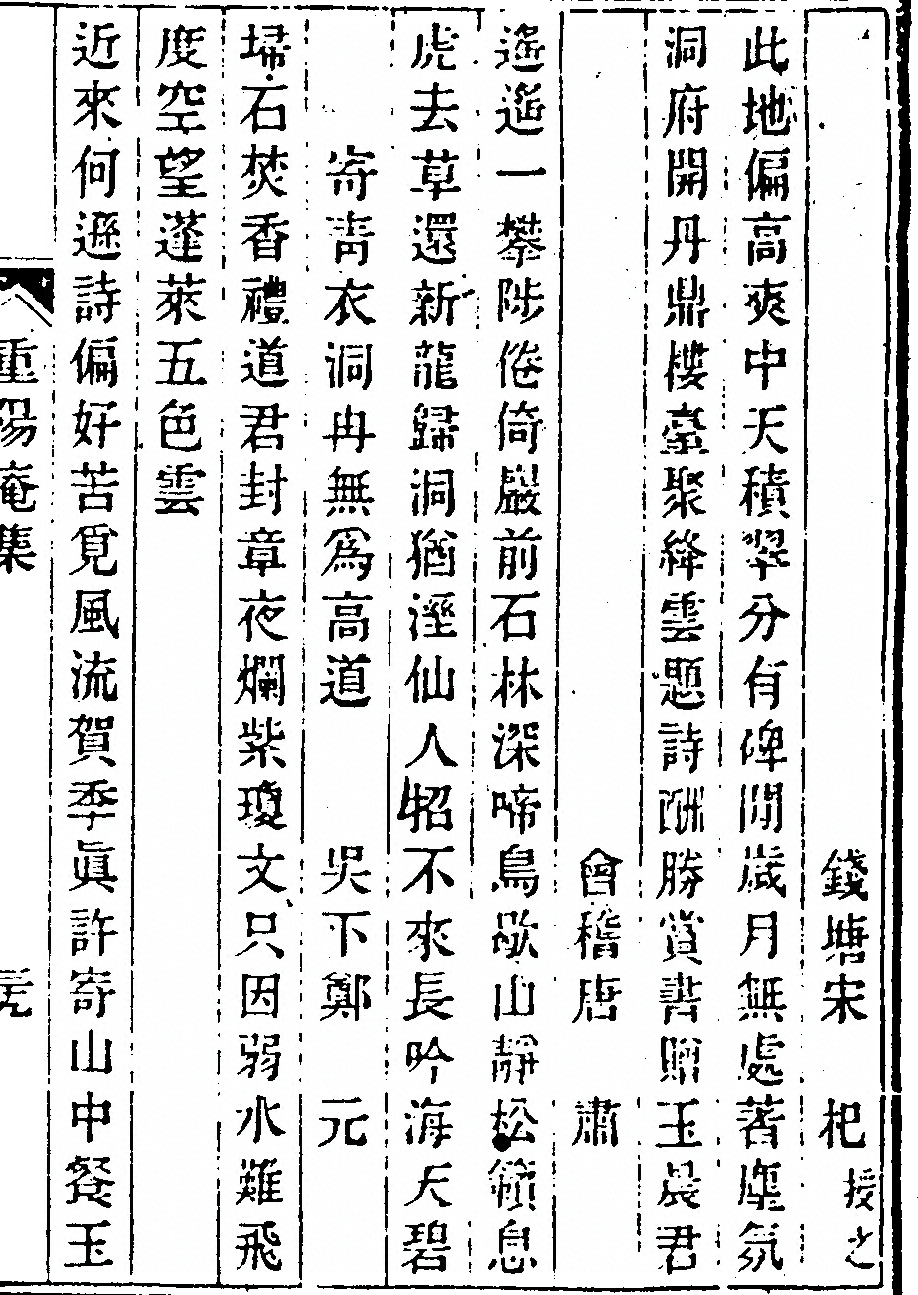 錢塘宋　杞授之
此地偏高爽中天積翠分有碑閒歲月無處著塵氛
洞府開丹鼎樓臺聚絳雲題詩酬勝賞書贈玉晨君
會稽唐　肅
遙遙一攀陟倦倚巖前石林深啼鳥歇山靜松籟息
虎去草還新龍歸洞猶溼仙人招不來長吟海天碧
寄靑衣洞冉無爲高道　吳下鄭　元
埽石焚香禮道君封章夜爛紫瓊文只因弱水難飛
度空望蓬萊五色雲
近來何遜詩偏好苦覓風流賀季眞許寄山中餐玉
重陽庵集